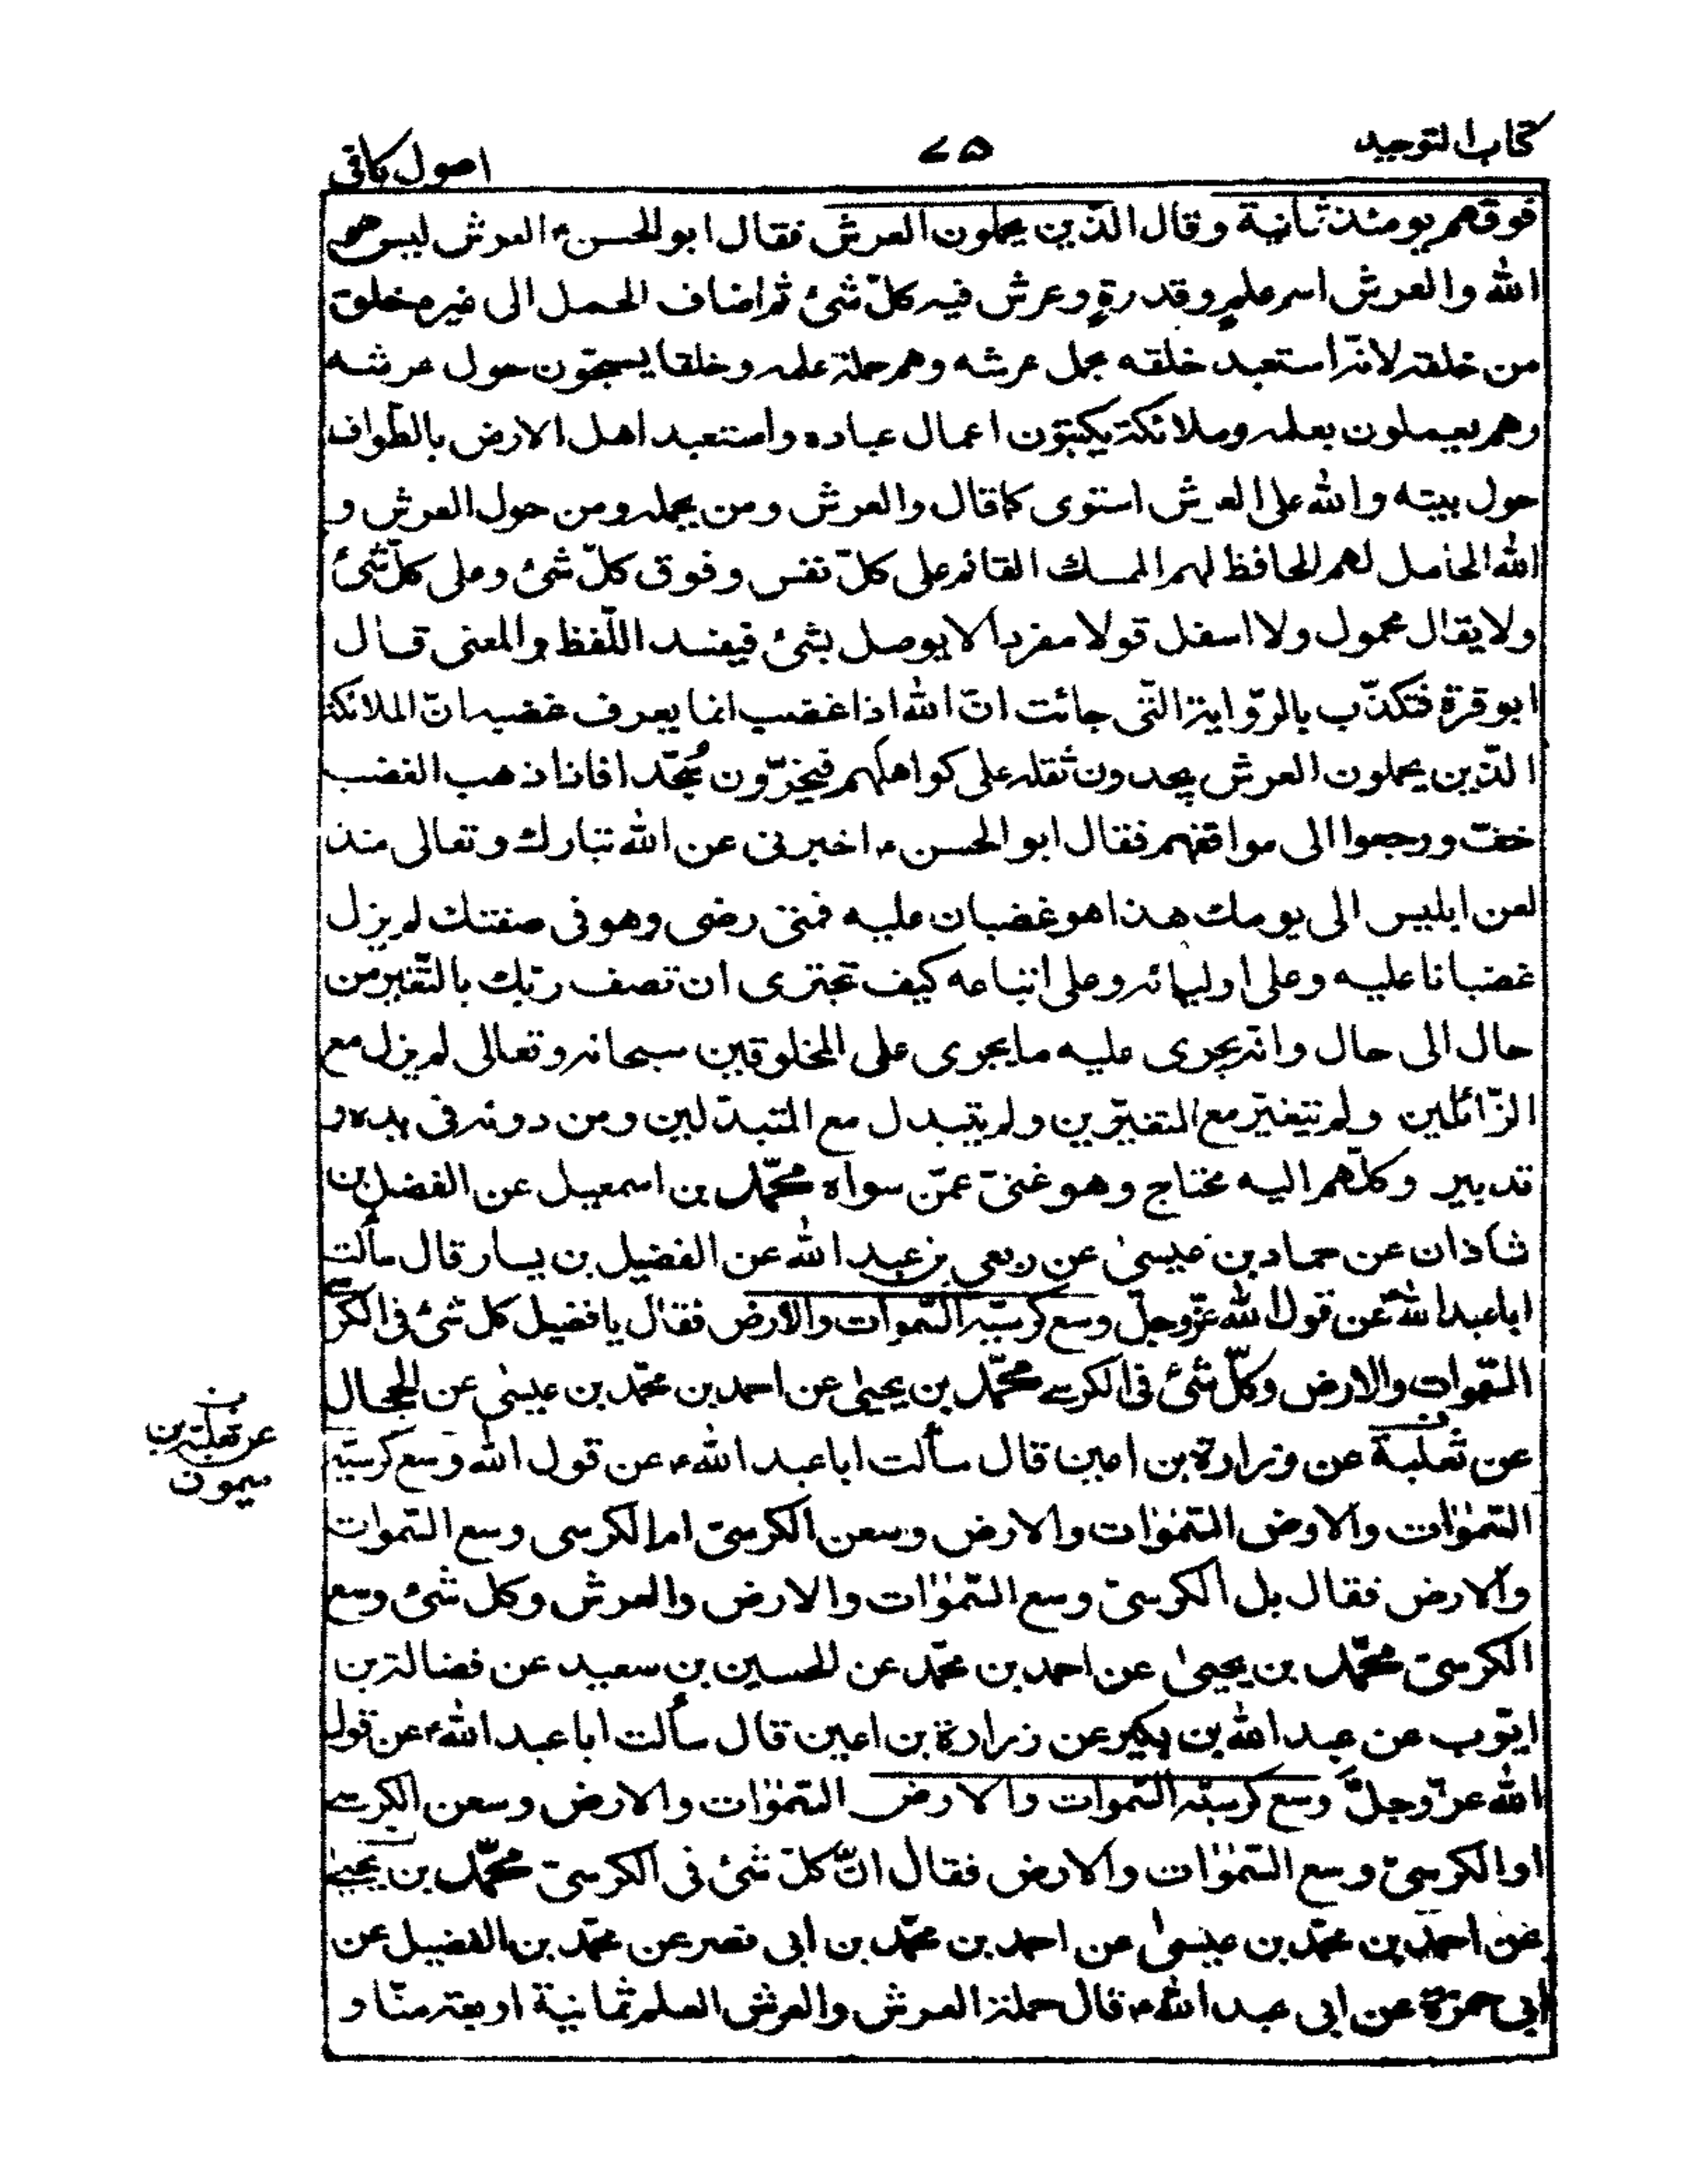 كتاب التوحيد
٧٥
اصول كافى
فوقهم يومئذ ثمانية وقال الذّين يحملون العرش فقال ابو الحسن ع العرش ليس هو
الله والعرش اسم علم وقدرة وعرش فيه كلّ شئ ثم اضاف الحمل الى غيره خلق
من خلقه لانّه استعبد خلقه بحمل عرشه وهم حملة علمه وخلقا يسبحّون حول عرشه
وهم يعملون بعلمه وملائكة يكتبون اعمال عباده واستعبد اهل الارض بالطّواف
حول بيته والله على العرش استوى كما قال والعرش ومن يحمله ومن حول العرش و
الله الحامل لهم الحافظ لهم الممسك القائم على كلّ نفس وفوق كلّ شئ وعلى كلّ شئ
ولا يقال محمول ولا اسفل قولا مفردا لا يوصل بشئ فيفسد اللّفظ والمعنى قال
ابو قرة فتكذّب بالرّواية التّى جائت انّ الله اذا غضب انما يعرف غضبه انّ الملائكة
الذّين يحملون العرش يجدون ثقله على كواهلهم فيخرّون سُجّدا فاذا ذهب الغضب
خف ورجعوا الى مواقفهم فقال ابو الحسن ع اخبرنى عن الله تبارك وتعالى منذ
لعن ابليس الى يومك هذا هو غضبان عليه فمتى رضى وهو فى صفتك لم يزل
غضبانا عليه وعلى اوليائه وعلى اتباعه كيف تجترى ان تصف ربّك بالتّغير من
حال الى حال وانّه يجرى عليه ما يجرى على المخلوقين سبحانه وتعالى لم يزل مع
الزّائلين ولم يتغيّر مع المتغيّرين ولم يتبدل مع المتبدّلين ومن دونه فى يده و
تدبيره وكلّهم اليه محتاج وهو غنىّ عمّن سواه محمّد بن اسمعيل عن الفضل بن
شاذان عن حماد بن عيسىٰ عن ربعى بن عبد الله عن الفضيل بن يسار قال سألت
ابا عبد الله ع عن قول الله عزّوجلّ وسع كرسيّه السّموات والأرض فقال يا فضيل كل شئ فى الكرسى
السّموات والارض وكلّ شئ فى الكرسے محمّد بن يحيىٰ عن احمد بن محمّد بن عيسىٰ عن الحجال
عن ثعلبة عن زرارة بن اعين قال سألت ابا عبد الله ع عن قول الله وسع كرسيّه
عن ثعلبة بن
ميمون
السّمٰوٰات والارض السّمٰوٰات والارض وسعن الكرسىّ ام الكرسى وسع السّموات
والارض فقال بل الكرسىّ وسع السّمٰوٰات والارض والعرش وكل شئ وسع
الكرسىّ محمّد بن يحيىٰ عن احمد بن محمّد عن الحسين بن سعيد عن فضالة بن
ايّوب عن عبد الله بن بكير عن زرارة بن اعين قال سألت ابا عبد الله ع عن قول
الله عزّوجلّ وسع كرسيّه السّموات والارض السّمٰوٰات والارض وسعن الكرسے
او الكرسىّ وسع السّمٰوٰات والارض فقال انّ كلّ شئ فى الكرسىّ محمّد بن يحيىٰ
عن احمد بن محمّد بن عيسىٰ عن احمد بن محمّد بن ابى نصر عن محمّد بن الفضيل عن
ابى حمزة عن ابى عبد الله ع قال حملة العرش والعرش العلم ثمانية اربعة منّا و